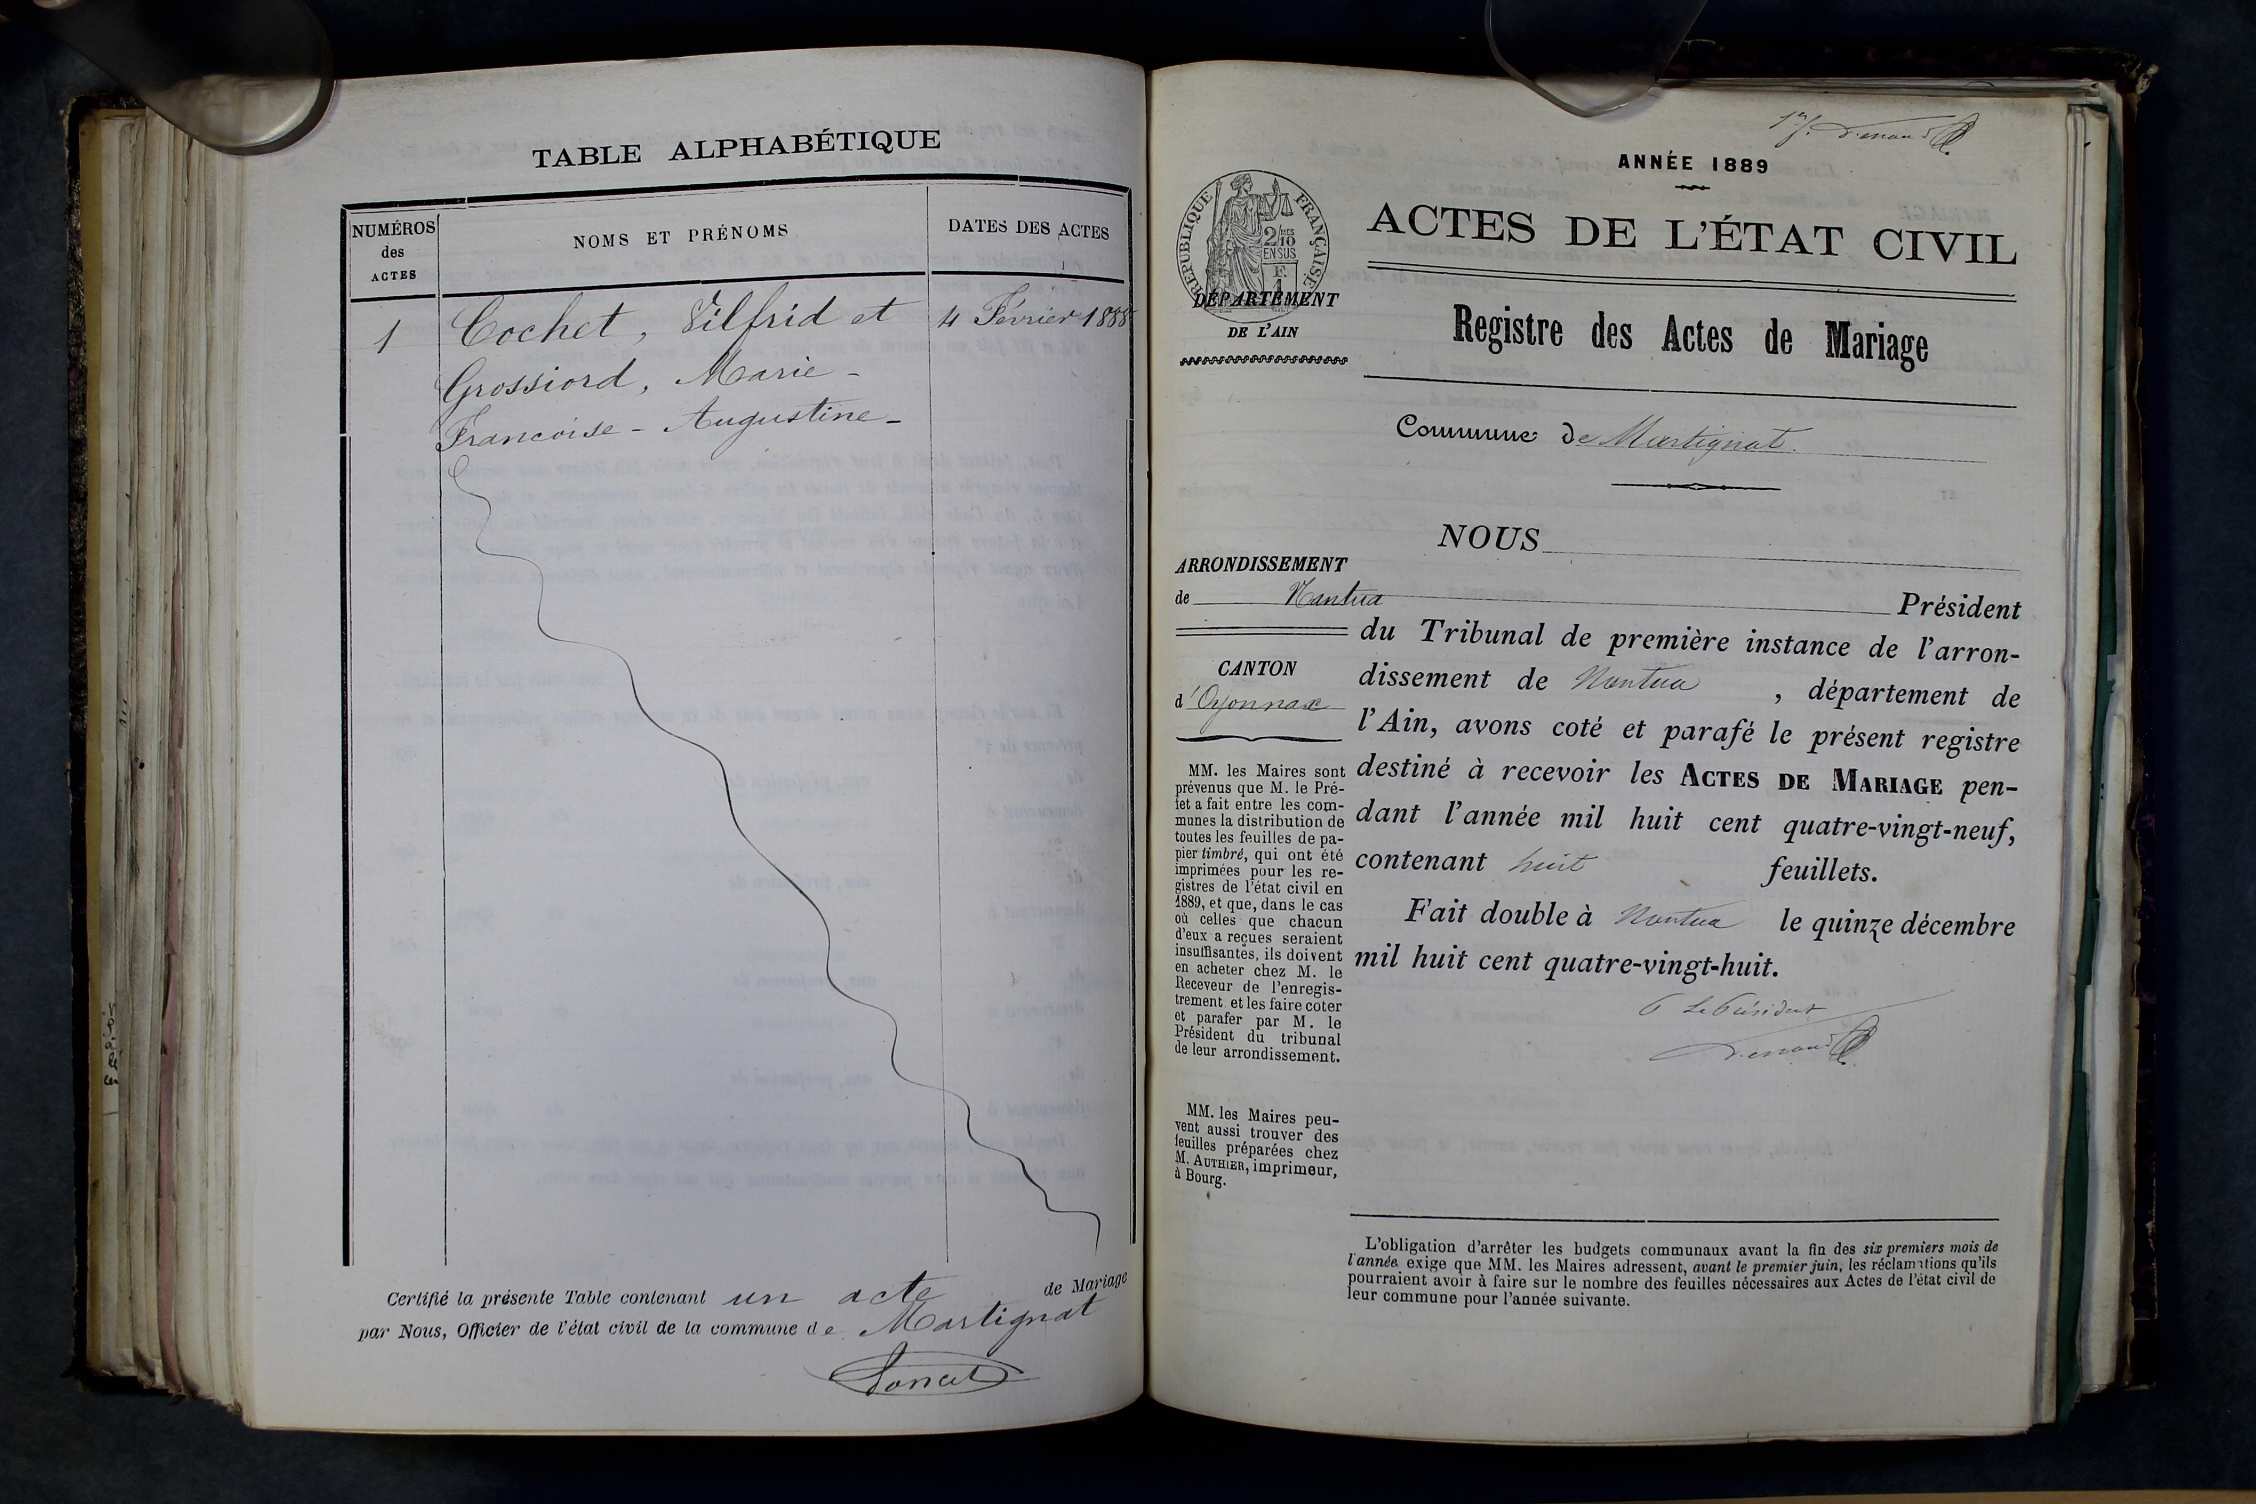 TABLE ALPHABÉTIQUE
NUMÉROS
des
ACTES
NOMS ET PRÉNOMS
DATES DES ACTES
1
Cochet, Vilfrid et
4 Février 1888
Grossiord, Marie-
Françoise-Augustine-
Certifié la présente Table contenant un acte de Mariage
par Nous, Officier de l'état civil de la commune de Martignat
ANNÉE 1889
RÉPUBLIQUE FRANÇAISE
ACTES DE L'ÉTAT CIVIL
DÉPARTEMENT
DE L'AIN
Registre des Actes de Mariage
Commune de Martignat.
ARRONDISSEMENT
de Nantua
CANTON
d'Oyonnax
MM. les Maires sont
prévenus que M. le Pré-
fet a fait entre les com-
munes la distribution de
toutes les feuilles de pa-
pier timbré, qui ont été
imprimées pour les re-
gistres de l'état civil en
1889, et que, dans le cas
où celles que chacun
d'eux a reçues seraient
insuffisantes, ils doivent
en acheter chez M. le
Receveur de l'enregis-
trement et les faire coter
et parafer par M. le
Président du tribunal
de leur arrondissement.
MM. les Maires peu-
vent aussi trouver des
feuilles préparées chez
M. AUTHIER, imprimeur,
à Bourg.
NOUS
Président
du Tribunal de première instance de l'arron-
dissement de Nantua , département de
l'Ain, avons coté et parafé le présent registre
destiné à recevoir les ACTES DE MARIAGE pen-
dant l'année mil huit cent quatre-vingt-neuf,
contenant huit feuillets.
Fait double à Nantua le quinze décembre
mil huit cent quatre-vingt-huit.
Le Président
L'obligation d'arrêter les budgets communaux avant la fin des six premiers mois de
l'année exige que MM. les Maires adressent, avant le premier juin, les réclamations qu'ils
pourraient avoir à faire sur le nombre des feuilles nécessaires aux Actes de l'état civil de
leur commune pour l'année suivante.